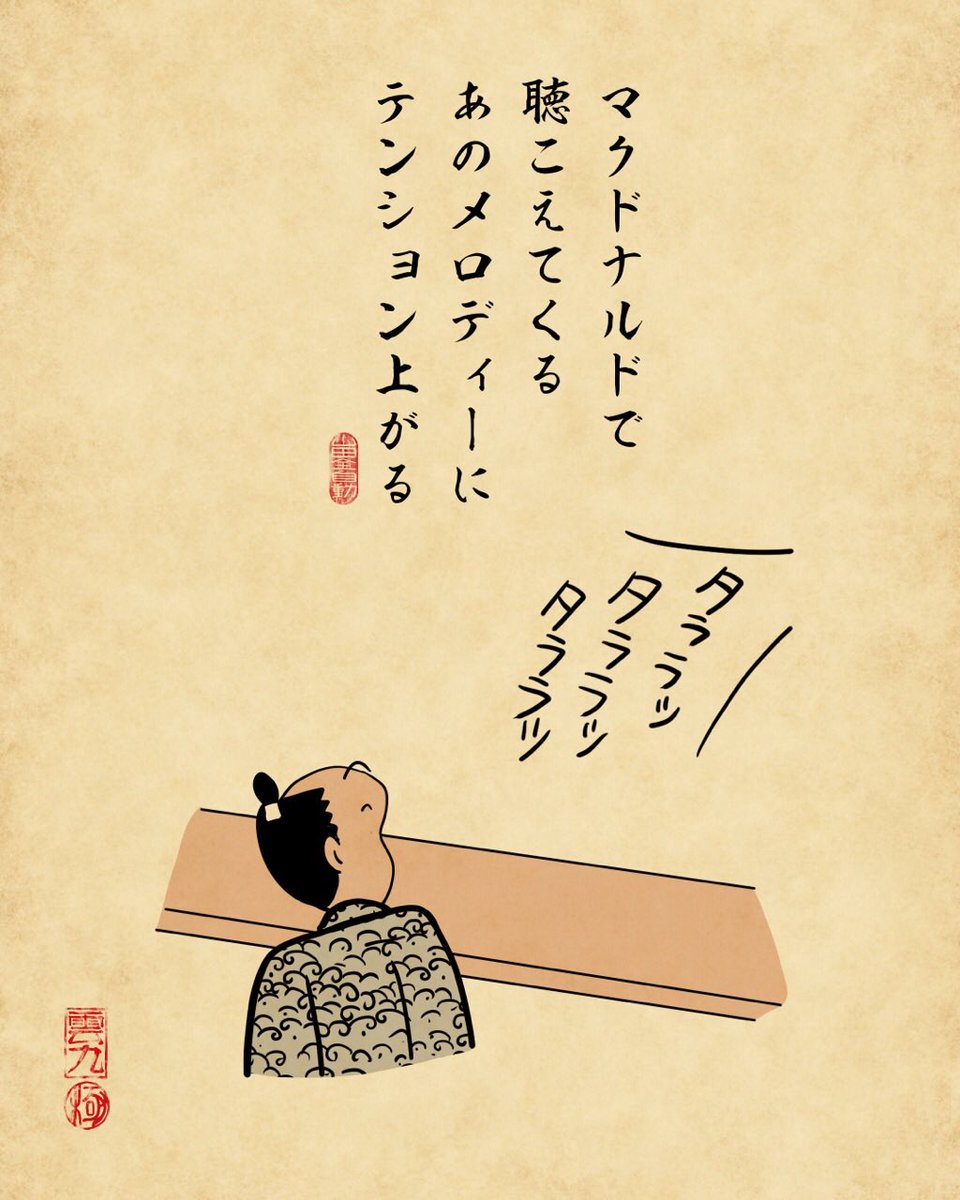 マクドナルドで
聴こえてくる
あのメロディーに
テンション上がる
タララッ
タララッ
タララッ
雲九
極